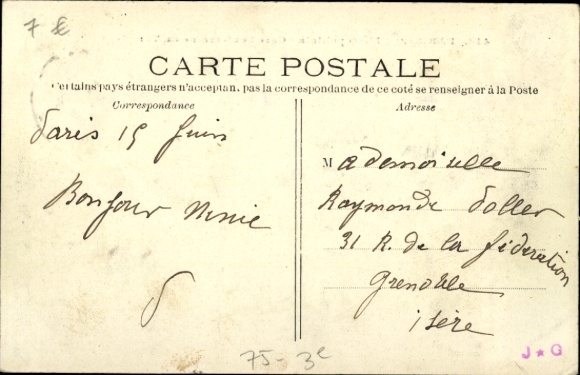 7 €
CARTE POSTALE
Certains pays étrangers n'acceptan, pas la correspondance de ce coté se renseigner à la Poste
Correspondance
Adresse
Paris 15 Juin
Bonjour Ninie
Mademoiselle
Raymonde Doller
31 R. de la fédération
Grenoble
isère
75-3e
J★G